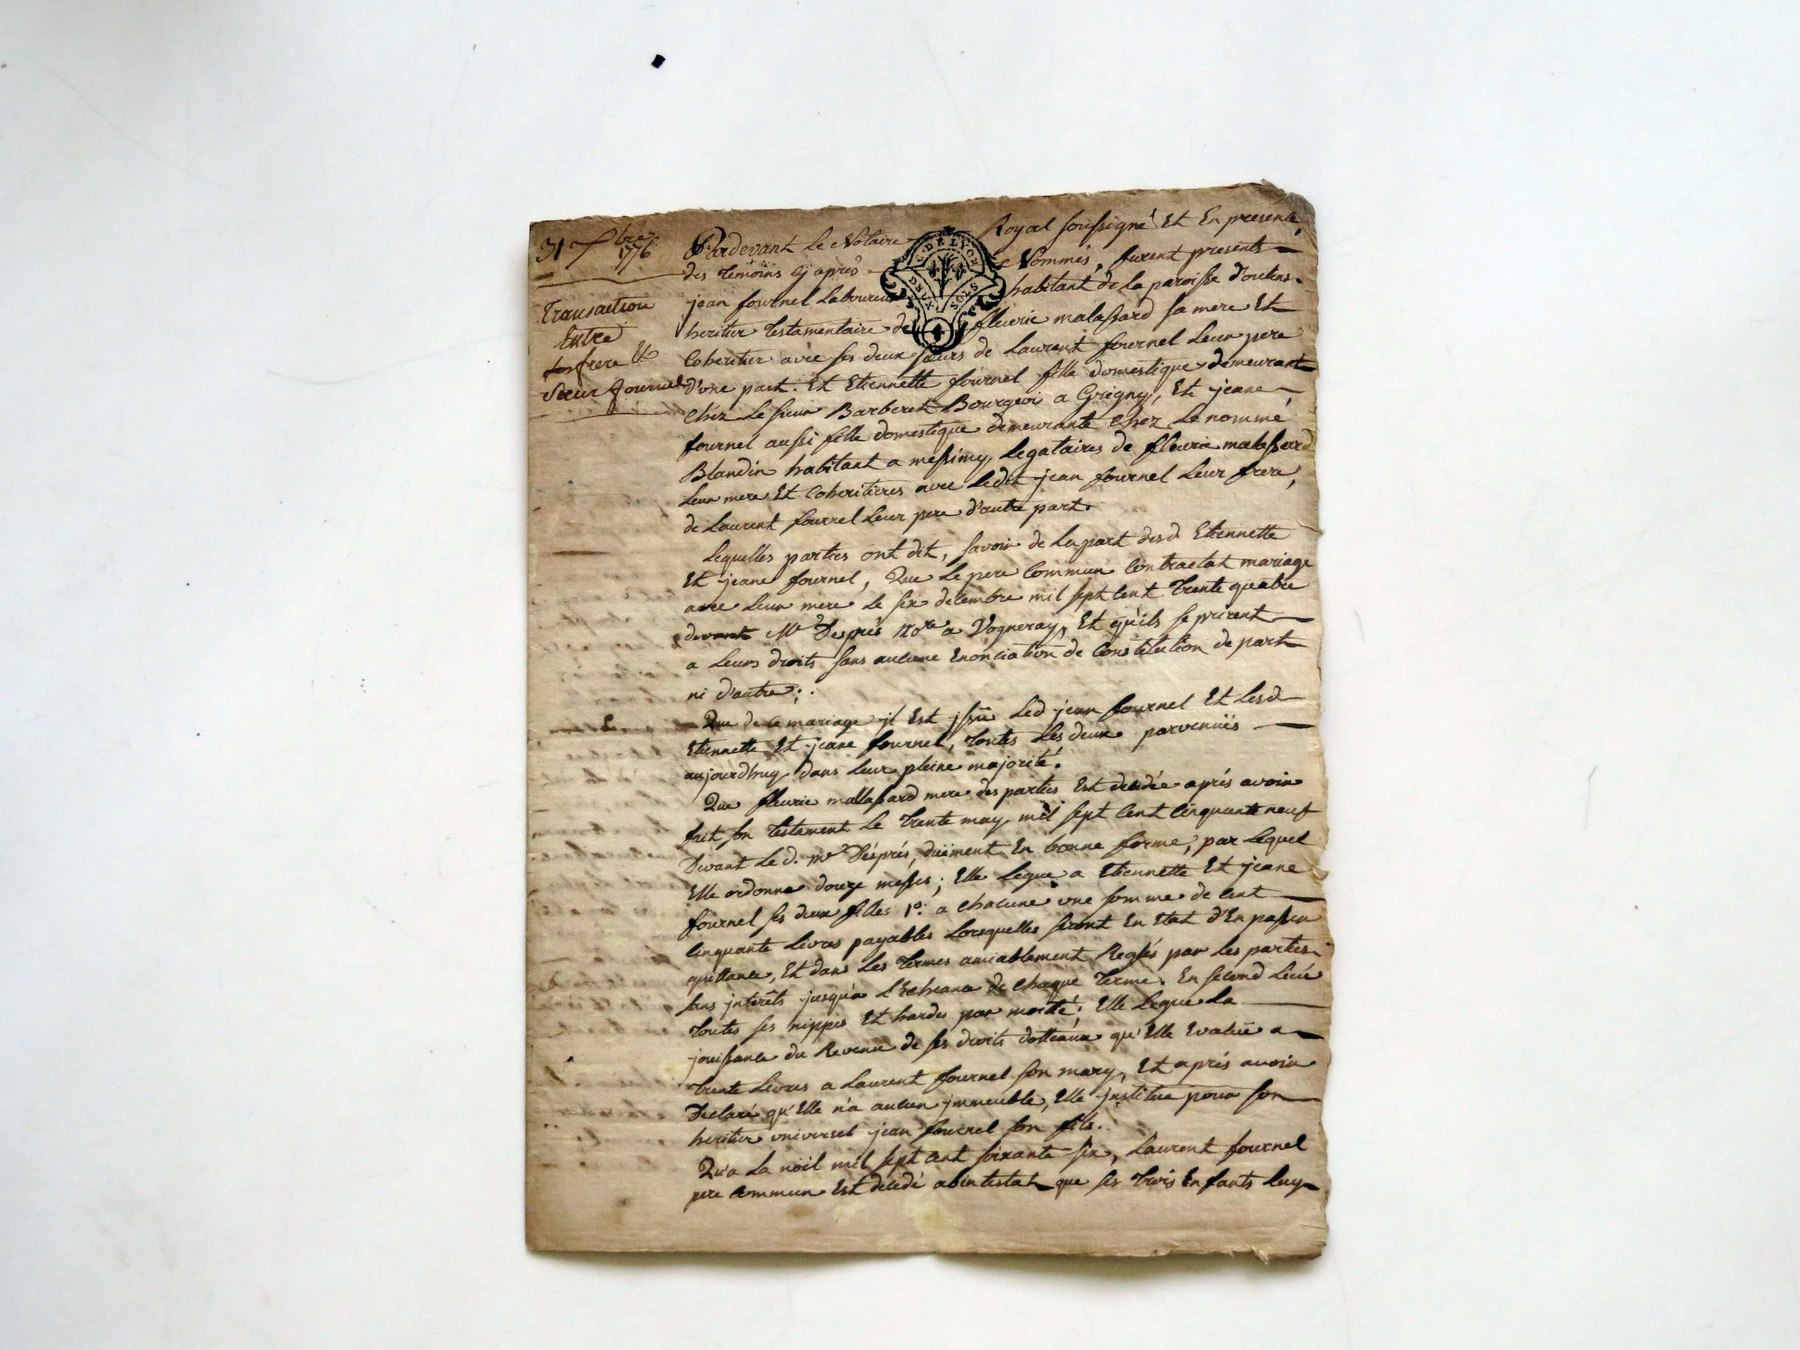 31 7bre 1776
Transaction
Entre
les frere &
Sœur fournel
G. DE LYON
DEUX SOLS
Pardevant Le Notaire Royal soussigné Et En presence
des temoins cy après Nommés, furent presents
jean fournel Laboureur habitant de La paroisse d'oulins
heritier testamentaire de fleurie malassard sa mere Et
Coheritier avec ses deux sœurs de Laurent fournel Leur pere
d'une part. Et Etiennette fournel fille domestique demeurant
chéz Le sieur Barberet Bourgeois a Grigny, Et jeane
fournel aussi fille domestique demeurante chez Le nommé
Blandin habitant a messimy, Legataires de fleurie malassard
Leur mere Et coheritieres avec Ledit jean fournel Leur frere,
de Laurent fournel Leur pere d'autre part.
Lequelles parties ont dit, savoir de La part desd. Etiennette
Et jeane fournel, Que Le pere Commun Contractat mariage
avec Leur mere Le six decembre mil sept cent trente quatre
devant Me Després nore a Vogneray, Et qu'ils se prirent
a Leurs droits sans aucune Enonciation de Constitution de part
ni d'autre;.
Que de ce mariage jl Est jssü Led jean fournel Et Lesd
Etiennette Et jeane fournel, toutes Les deux parvenües
aujourdhuy dans Leur pleine majorité.
Que fleurie mallassard mere des parties Est decedée aprés avoir
fait son testament Le trente may mil sept cent cinquante neuf
Devant Le d. me Désprés, düement En bonne forme, par Lequel
Elle ordonne douze messes; Elle Legue a Etiennette Et jeane
fournel ses deux filles 1o. a chacune une somme de cent
cinquante Livres payables Lorsquelles seront En Etat d'En passer
quittance, Et dans Les termes amiablement Reglés par Les parties
sans jnterêts jusqu'a L'Echeance de chaque terme. En second Lieu
toutes ses nippes Et hardes par moitié; Elle Legue La
jouissance du Revenu de ses droits dotteaux qu'Elle Evalüe a
trente Livres a Laurent fournel son mary, Et aprés avoir
Declaré qu'Elle n'a aucun jmmeuble, Elle jnstitue pour son
heritier universel jean fournel son fils.
Qu'a La nöel mil sept cent soixante six, Laurent fournel
pere commun Est decedé abintestat que ses trois Enfants Luy